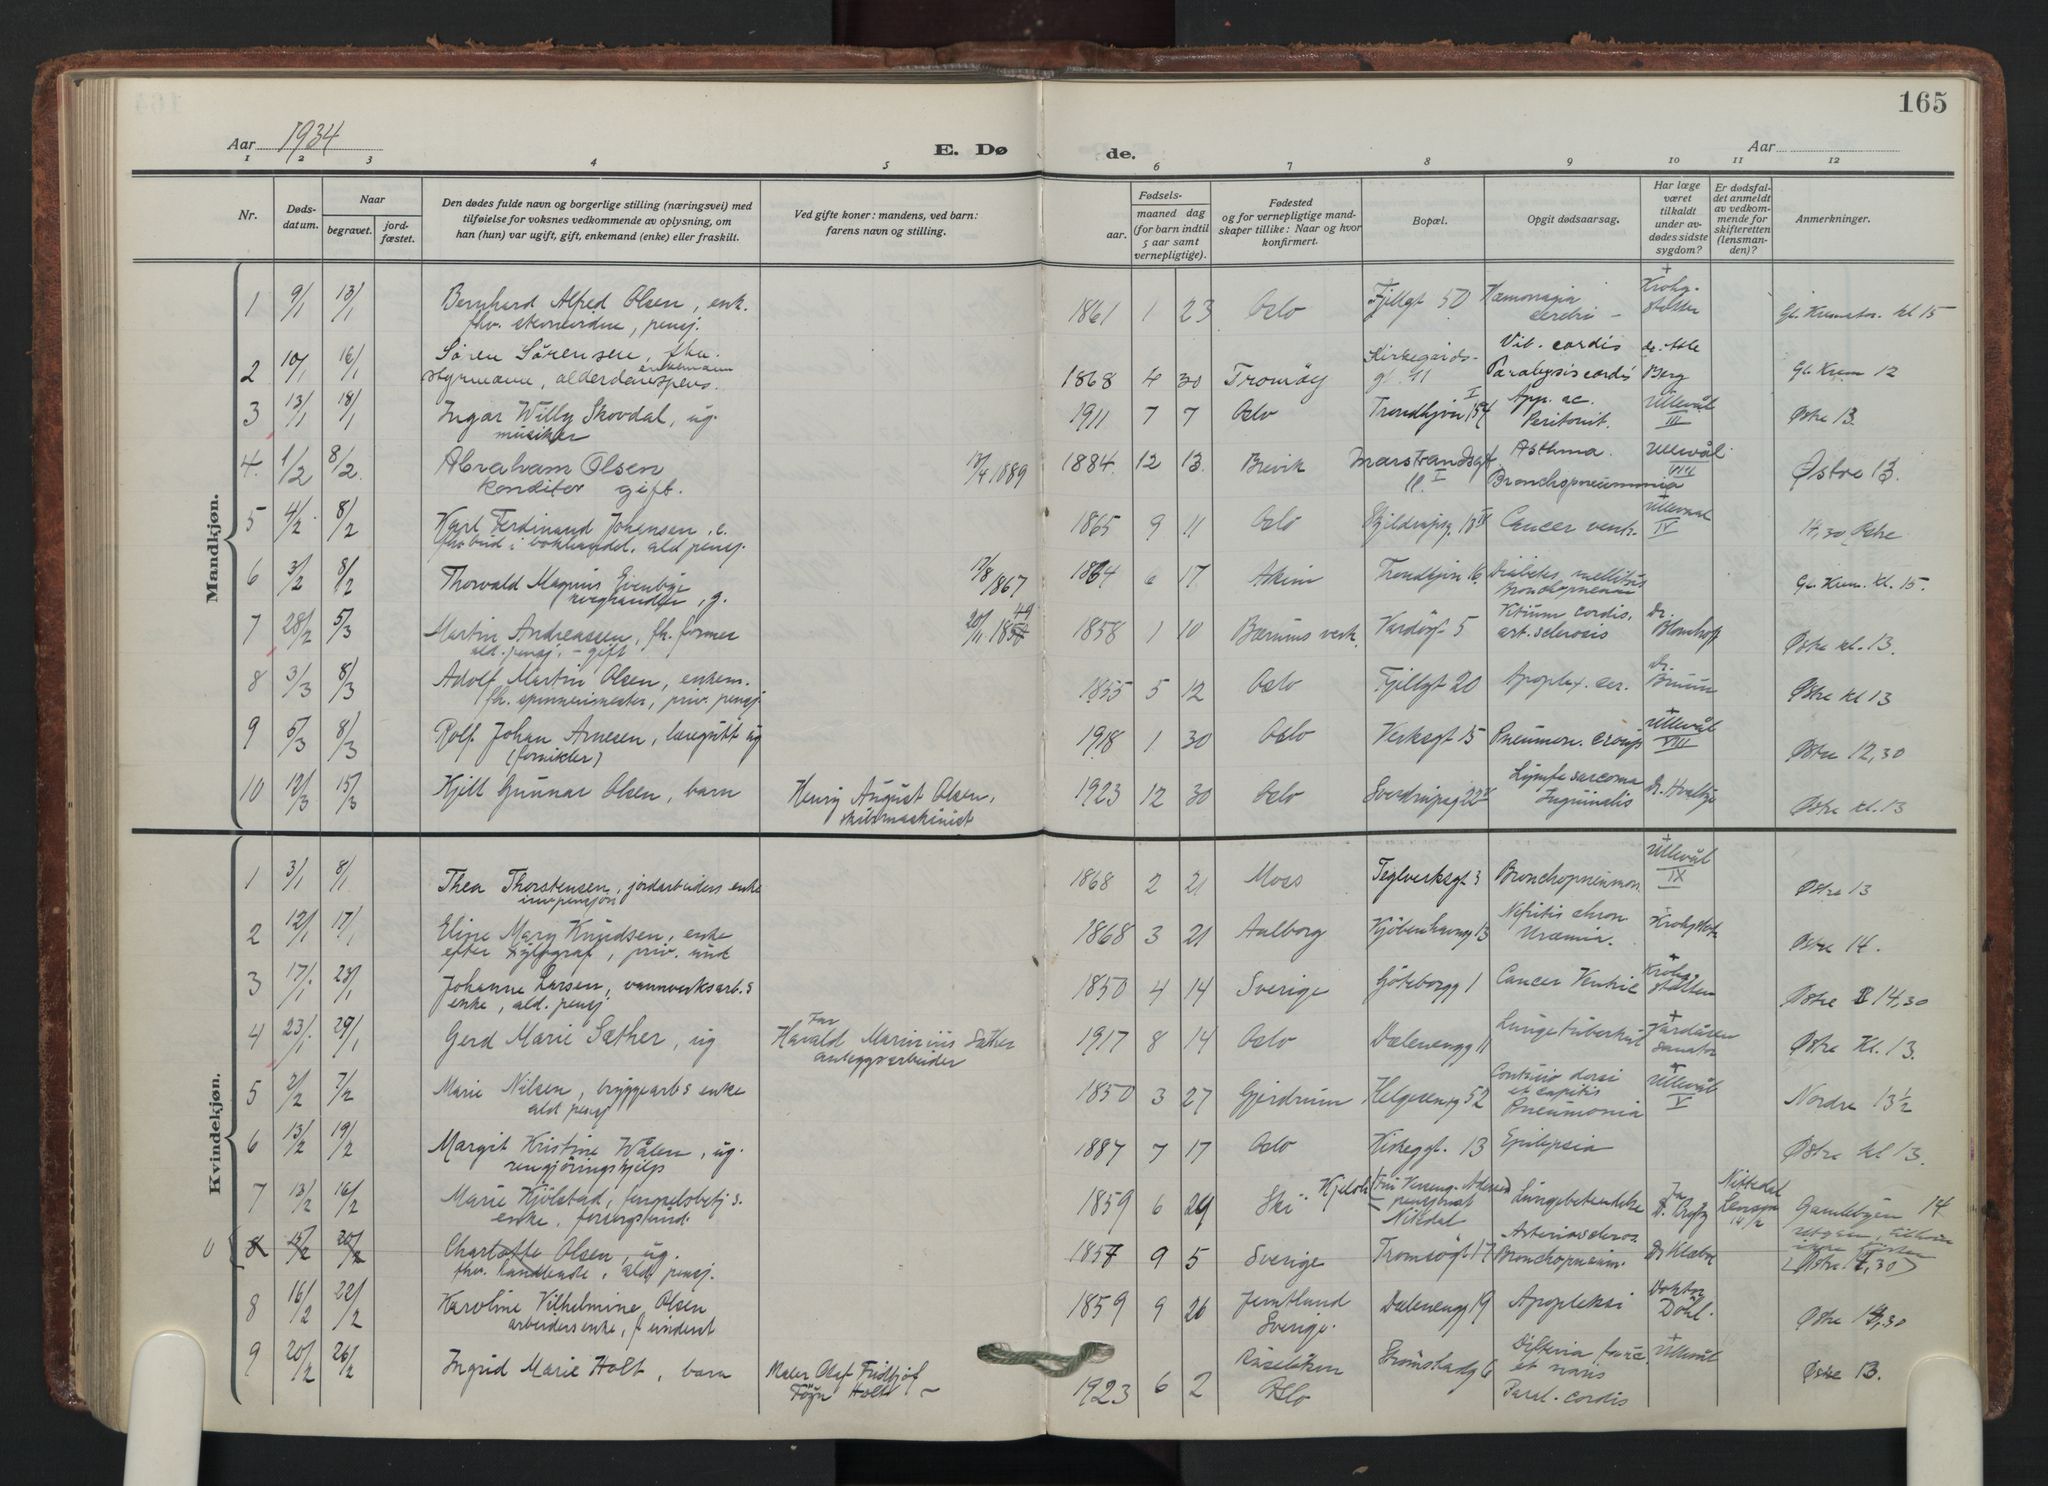 165
Aar 1934
E. Dø de.
Aar
1 2 3 4 5 6 7 8 9 10 11 12
Nr.
Døds-
datum.
Naar
begravet.
jord-
fæstet.
Den dødes fulde navn og borgerlige stilling (næringsvei) med
tilføielse for voksnes vedkommende av oplysning, om
han (hun) var ugift, gift, enkemand (enke) eller fraskilt.
Ved gifte koner: mandens, ved barn:
farens navn og stilling.
Fødsels-
aar.
maaned dag
(for barn indtil
5 aar samt
vernepligtige).
Fødested
og for vernepligtige mand-
skaper tillike: Naar og hvor
konfirmert.
Bopæl.
Opgit dødsaarsag.
Har læge
været
tilkaldt
under av-
dødes sidste
sygdom?
Er dødsfal-
det anmeldt
av vedkom-
mende for
skifteretten
(lensman-
den)?
Anmerkninger.
Mandkjøn.
1 9/1 13/1 Bernhard Alfred Olsen, enk. 1861 1 23 Oslo Fjellgt 50 Krohg-
støtten Gl. Kremator. kl 15
fhv. pensj.
2 10/1 16/1 Søren Sørensen, fhv. 1868 4 30 Tromøy Kirkegårds-
gt. 11 Vit. cordis
Paralysis cordis Berg Gl. Krem 12
styrmann, alderdomspens. enkemann
3 13/1 18/1 Ingar Willy Skovdal, ug. 1911 7 7 Oslo Trondhjvn 154 I App. ac.
Peritonit. Ullevål
III Østre 13
musiker
4. 1/2 8/2 Abraham Olsen 13/4 1889 1884 12 13 Brevik Marstrandsgt.
11. I Asthma.
Bronchopneumonia Ullevål
VIII Østre 13
konditor gift.
5 4/2 8/2 Karl Ferdinand Johansen, e. 1865 9 11 Oslo 13 IV Cancer ventr. Ullevaal
IV 14,30 Østre
fhv. bud i bokhandel, ald pensj.
6 3/2 8/2 Thorvald Magnus g. 17/8 1867 1864 6 17 Askim Trondhjvn 16 Diabetes mellitus
Bronchopneum Gl. Krem. kl. 15.
7 28/2 5/3 Martin Andreassen, fh. former 20/11 1849 1858 1 10 Bærums verk Vardøgt 5 Vitium cordis,
art. sclerosis Dr.
Blomhoff Østre kl. 13.
ald. pensj. - gift
8 3/3 8/3 Adolf Martin Olsen, enkem. 1855 5 12 Oslo Fjellgt 20 Apoplex. cer. Dr.
Bruun Østre kl 13
fh. spinnerimester, priv. pensj.
9 5/3 8/3 Rolf Johan Arnesen, læregutt ug 1918 1 30 Oslo Verksgt 15 Pneumon. croup Ullevål
VIII Østre 12,30
(fornikler)
10 12/3 15/3 Kjell Gunnar Olsen, barn Henry August Olsen,
skibsmaskinist 1923 12 30 Oslo Sverdrupsg 22 V Lymfosarcoma
Inguinalis Dr. Østre kl. 13
Kvindekjøn.
1 3/1 8/1 Thea Thorstensen, jordarbeiders enke 1868 2 21 Moss Teglverksgt 3 Bronchopneumon. Ullevål
IX Østre 13
2 12/1 17/1 Eline Mary Knudsen, enke 1868 3 21 Aalborg Kjøbenhavng 13 Nefritis chron
Uræmia. Krohgstøt Østre 14.
efter xylograf, priv. und
3 17/1 23/1 Johanne Larsen, vannverksarb.s 1850 4 14 Sverige Göteborgg 1 Cancer Ventric Krohg-
støtten Østre 14,30
enke, ald. pensj
4 23/1 29/1 Gerd Marie Sæther, ug Far
Harald Marinius Sæther
anleggsarbeider 1917 8 14 Oslo Dælenengg 11 Lungetuberkul Vardåsen
Sanator Østre Kl. 13.
5 2/2 7/2 Marie Nilsen, bryggearb.s enke 1850 3 27 Gjerdrum Helgesensg 52 Contusio dorsi
et capitis
Pneumonia Ullevål
V Nordre 13½
ald pensj
6 13/2 19/2 Margit Kristine Wålen, ug. 1887 7 17 Oslo Kirkeggt. 13 Epilepsia Østre kl 13.
rengjöringshjelp
7 13/2 16/2 Marie Kjölstad, fengselsbetj.s 1859 6 29 Ski pensjonat
Nittedal Lungebetendelse Dr. Nittedal
Lensm
14/2 Gamlebyen 14
enke, forsorgsund.
8 15/2 20/2 Charlotte Olsen, ug. 1857 9 5 Sverige Tromsögt 17 Arterioscleros.
Bronchopneum. Dr (Østre 12,30)
ald pensj.
8 16/2 22/2 Karoline Vilhelmine Olsen 1859 9 26 Jemtland
Sverige. Dælenengg 19 Apopleksi Doktor
Döhl. Østre 14,30
arbeidersenke,
9 20/2 26/2 Ingrid Marie Holt, barn Maler Olaf Fridtjof
Føyn Holt 1923 6 2 Oslo Strömstadg 6 Difteria
et naris
Paral. cordis Ullevål Østre 13.